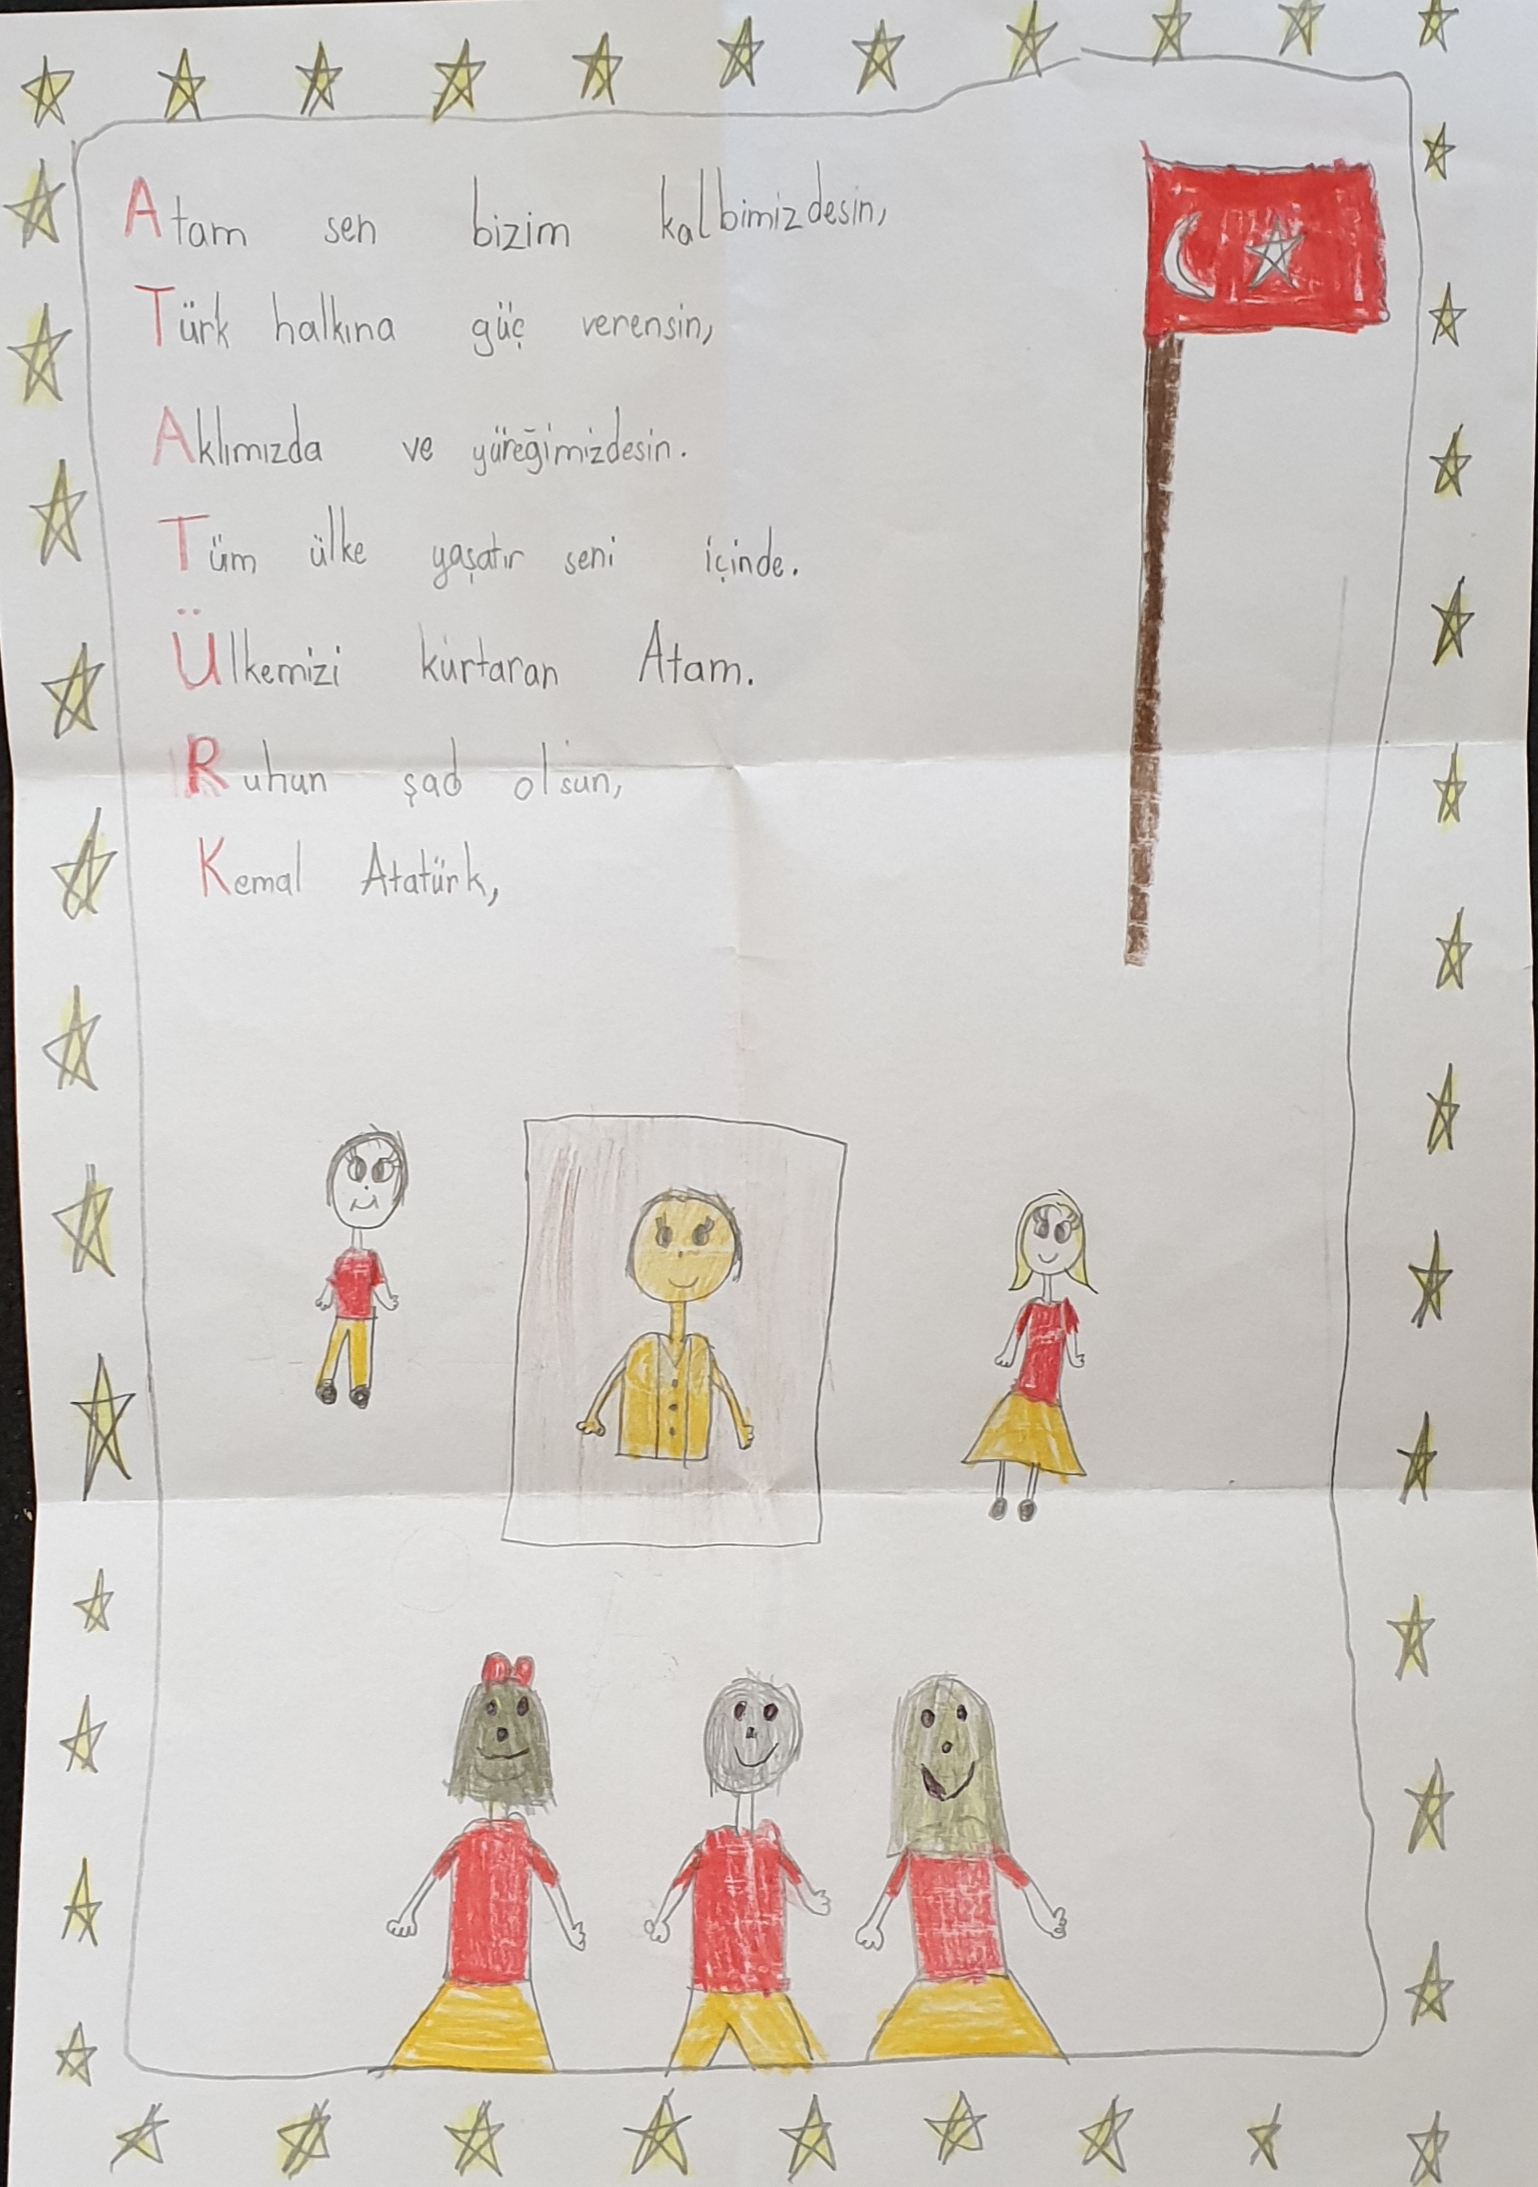 Atam sen bizim kalbimizdesin,
Türk halkına güç verensin,
Aklımızda ve yüreğimizdesin.
Tüm ülke yaşatır seni içinde.
Ülkemizi kurtaran Atam.
Ruhun şad olsun,
Kemal Atatürk,